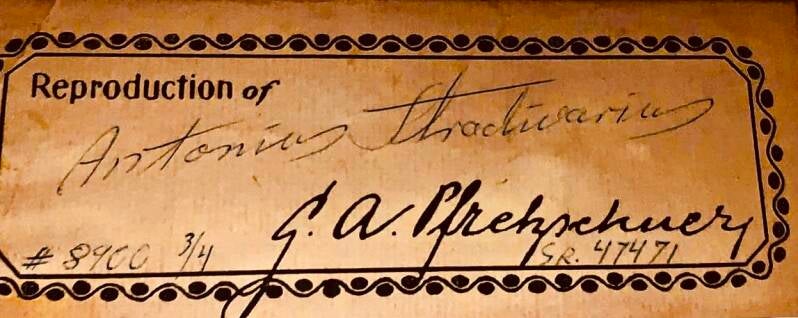 Reproduction of
Antonius Stradivarius
G. A. Pfretzschner
# 8900 3/4
SR. 47471